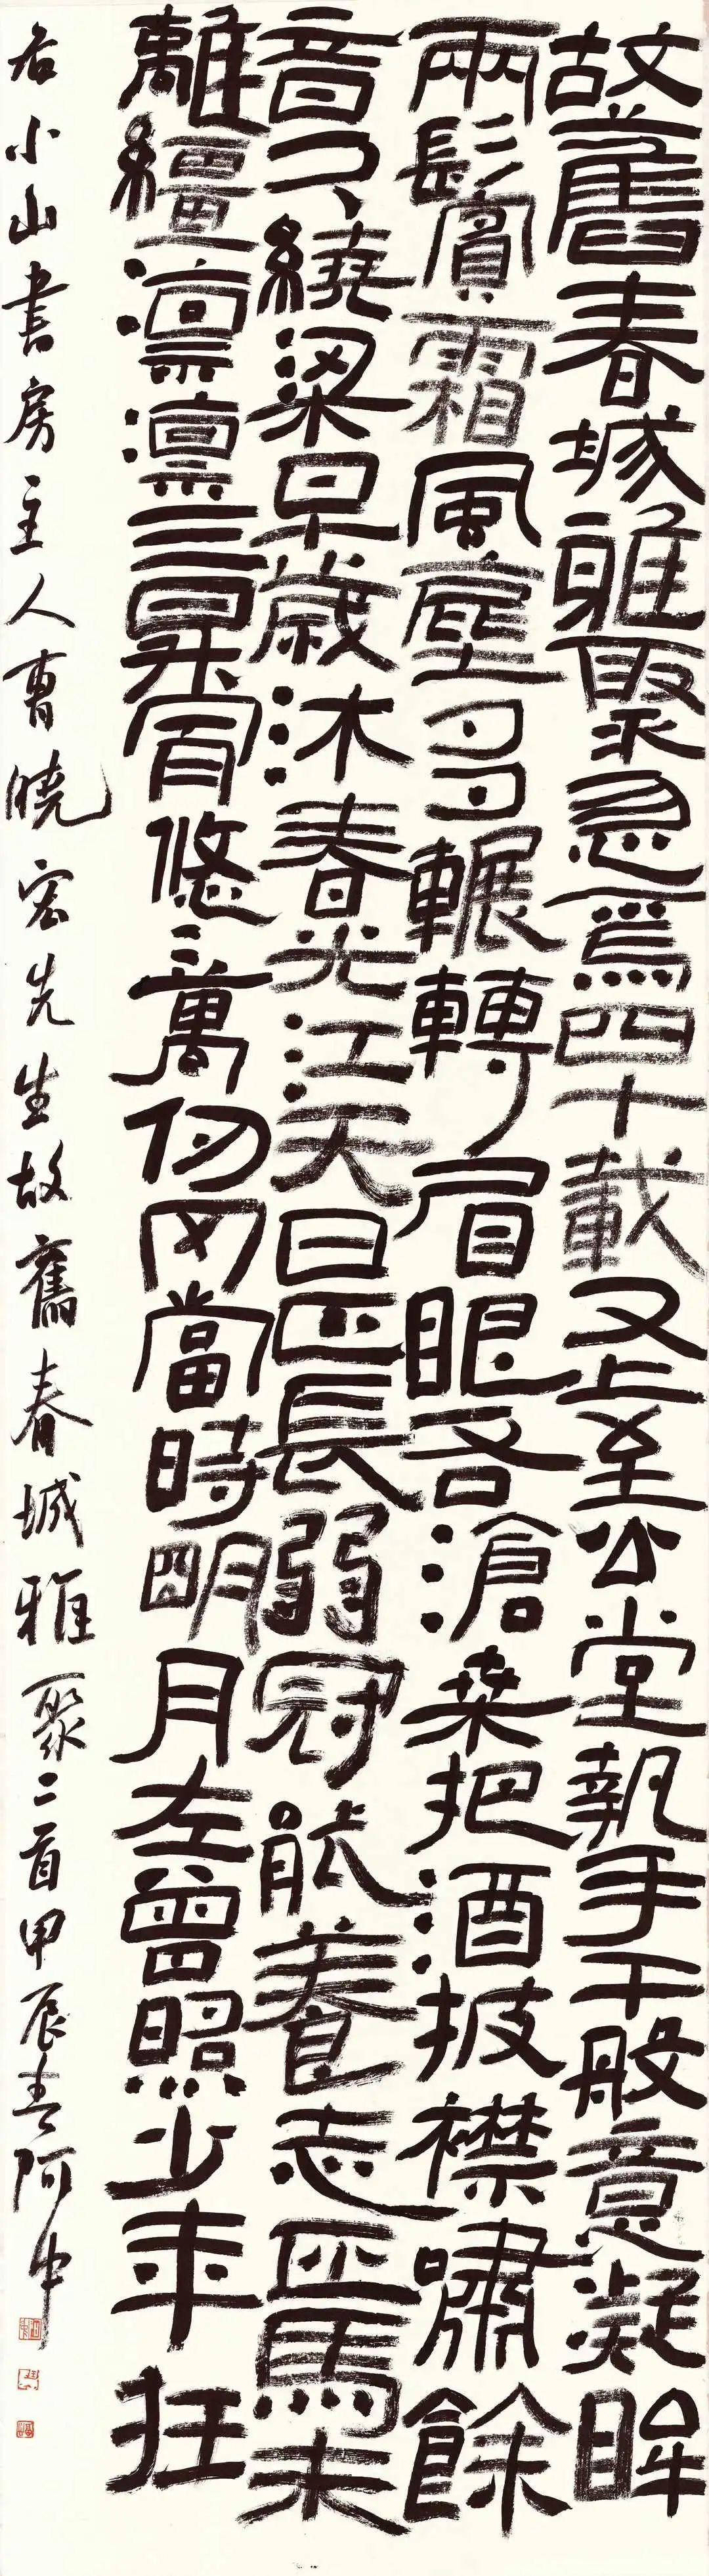 故舊春城雅聚忽焉四十載又上至公堂執手千般意凝眸
兩鬢霜風塵多輾轉眉眼各滄桑把酒披襟嘯餘
音久繞梁早歲沐春光江天日正長弱冠能養志匹馬未
離繮凜凜三宵悠〻萬仞岡當時明月在曾照少年狂
右小山書房主人曹曉宏先生故舊春城雅聚二首甲辰春阿中